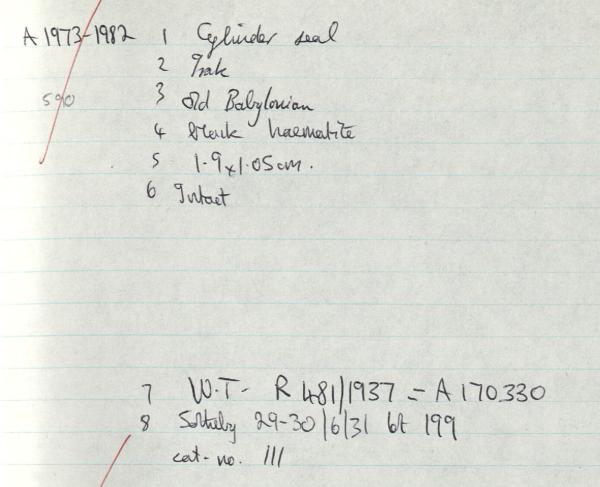 A 1973-1982 1 Cylinder seal
2 Irak
590 3 Old Babylonian
4 black haematite
5 1.9x1.05cm.
6 Intact
7 W.T- R 481/1937 = A 170330
8 Sotheby 29-30/6/31 lot 199
cat-no. 111